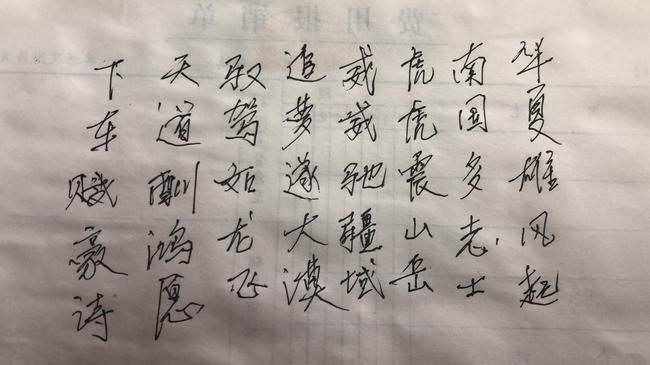 华夏雄风起
南国多志士
虎虎震山岳
威威驰疆域
追梦遂大漠
驭驾如龙飞
天道酬鸿愿
下车赋豪诗
费用报销单